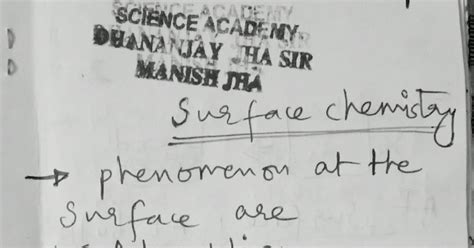 SCIENCE ACADEMY
DHANANJAY JHA SIR
MANISH JHA
Surface chemistry
→ phenomenon at the
surface are